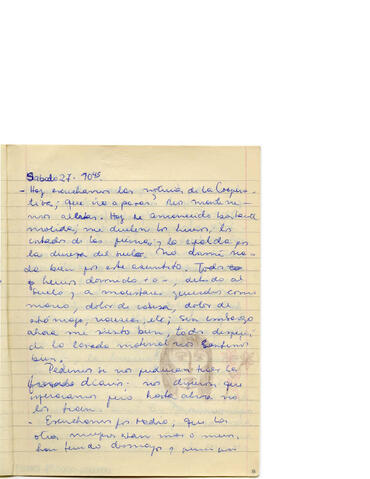 Sabado 27 - 10 45
- Hoy escuchamos las noticias de la Coopera-
tiva; que no aparas? Nos mante ni-
mos alertas. Hoy he amanecido bastante
molida; me duelen los huesos, los
costados de las piernas, y la espalda por
la dureza del suelo. No dormí na-
da bien por este asuntito. Todos
hemos dormido + o -, debido al
suelo y a malestares generales como
mareo, dolor de cabeza, dolor de
estómago, nauseas, etc; Sin embargo
ahora me siento bien, todos después
de la lavada matinal nos sentimos
bien.
Pedimos si nos pudieran traer la
frazada diaria. nos dijeron que
esperaramos pero hasta ahora no
los traen.
- Escuchamos por radio, que las
otras mujeres estan mas o menos,
han tenido desmayos y